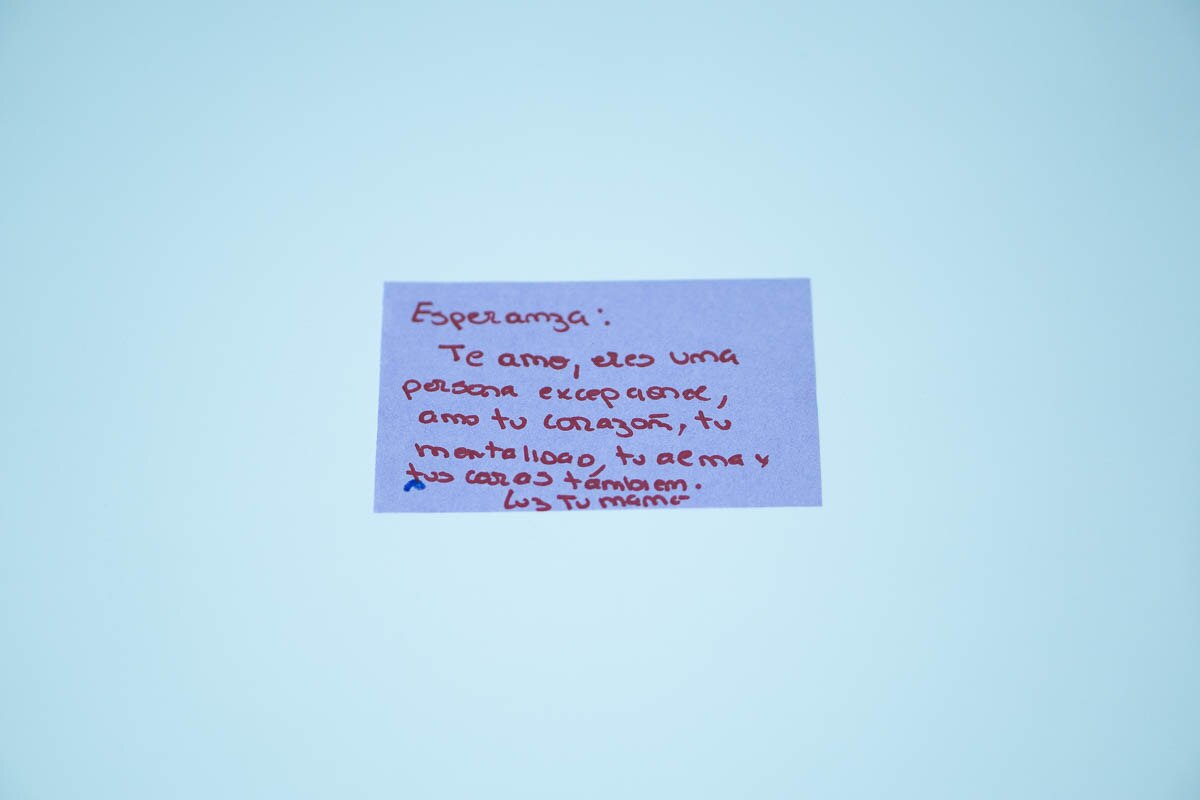 Esperanza:
Te amo, eres una
persona excepcional,
amo tu corazón, tu
mentalidad, tu alma y
tus caras también.
Luz Tu mamá